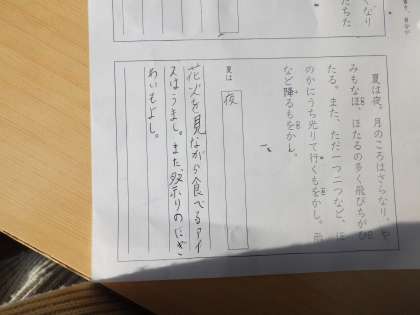 くなり
だちた
夏は夜。月のころはさらなり、や
みもなほ、ほたるの多く飛びちがひ
たる。また、ただ一つ二つなど、ほ
のかにうち光りて行くもをかし。雨
など降るもをかし。
夏は
夜
花火を見ながら食べるアイ
スはうまし。また、祭りのにぎ
わいもよし。